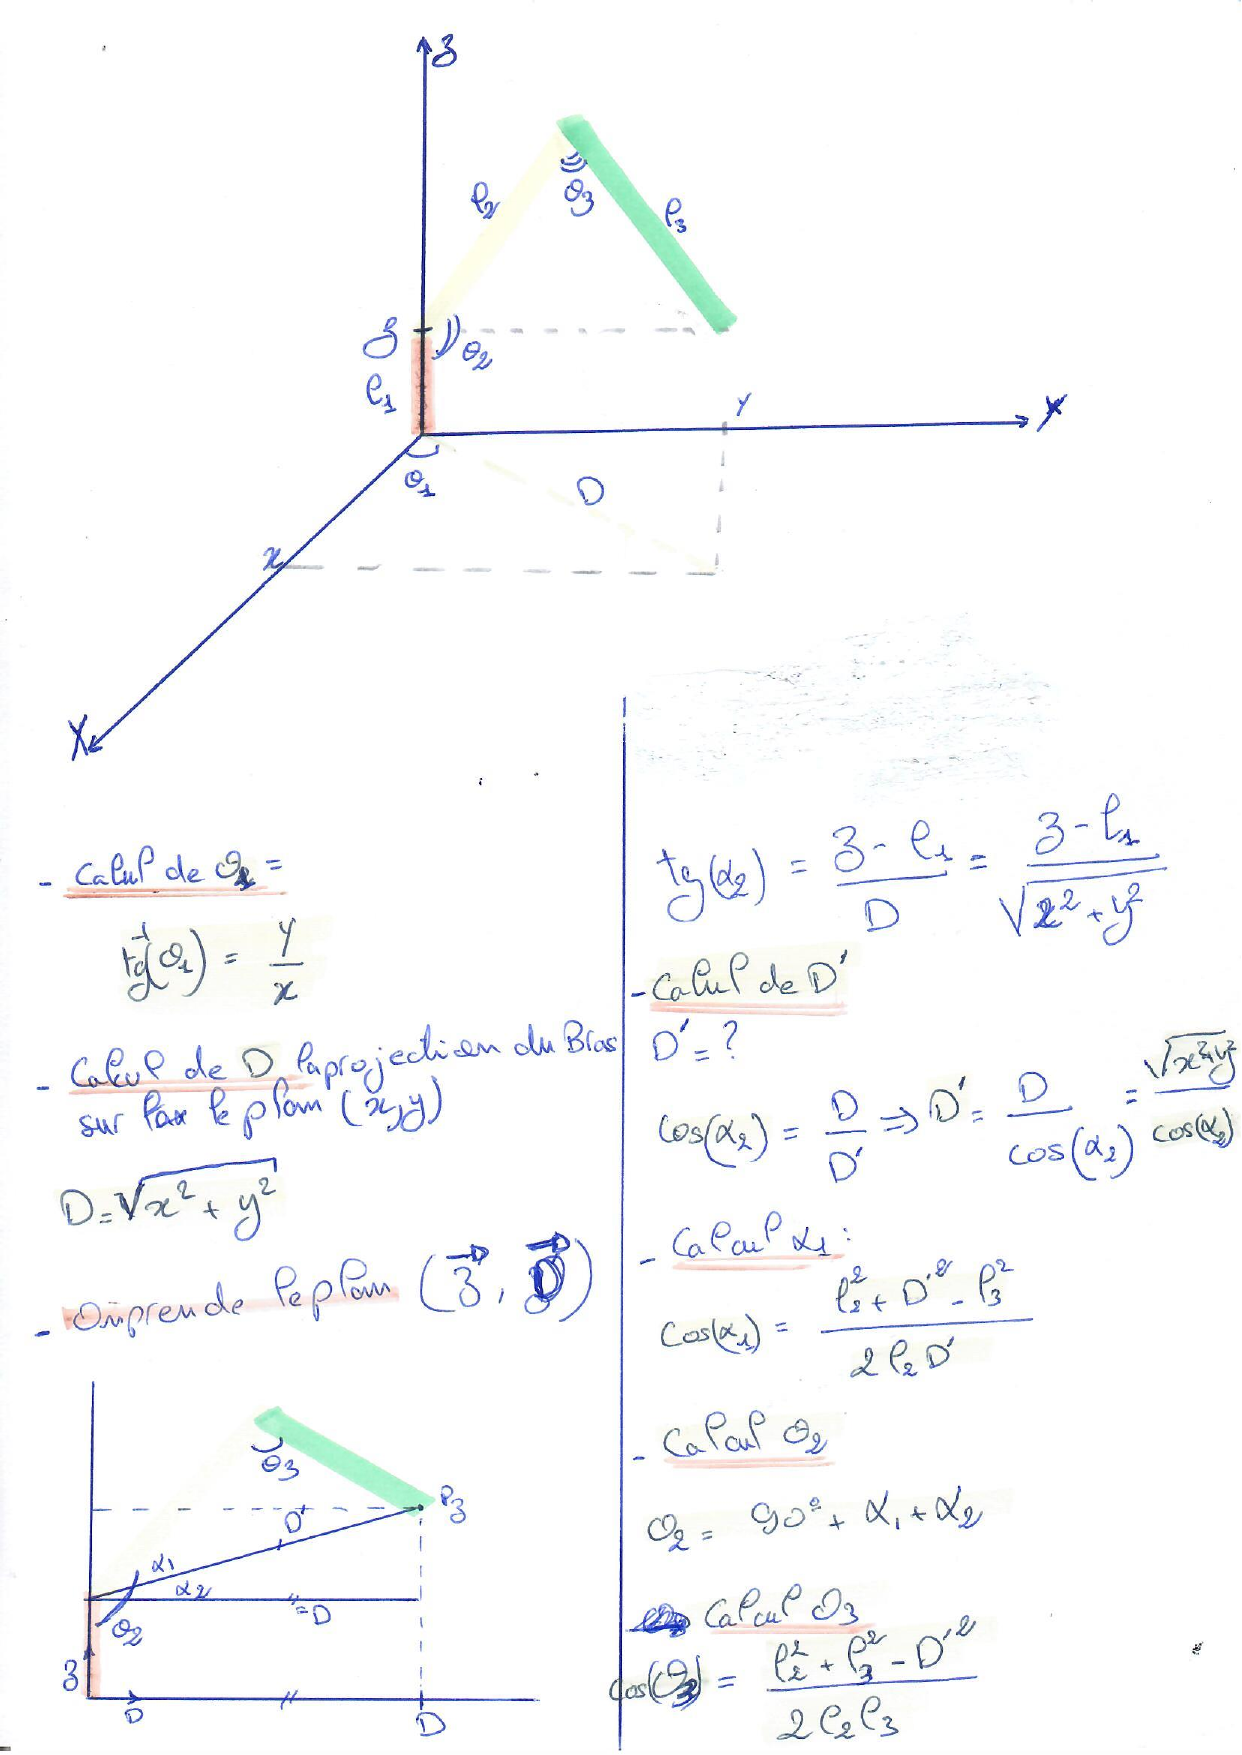 z
θ3
l2
l3
z
θ2
l1
Y
Y
θ1
D
x
X
- Calcul de θ1 =
tg⁻¹(θ1) = y/x
- Calcul de D la projection du Bras
sur le plan (x,y)
D = √(x² + y²)
- On prend le plan (z⃗, D⃗)
θ3
P3
D'
α1
α2
= D
θ2
z
D
D
tg(α2) = (z - l1)/D = (z - l1)/√(x² + y²)
- Calcul de D'
D' = ?
cos(α2) = D/D' ⇒ D' = D/cos(α2) = √(x²+y²)/cos(α2)
- Calcul α1 :
cos(α1) = (l2² + D'² - l3²)/(2 l2 D')
- Calcul θ2
θ2 = 90° + α1 + α2
Calcul θ3
cos(θ3) = (l2² + l3² - D'²)/(2 l2 l3)